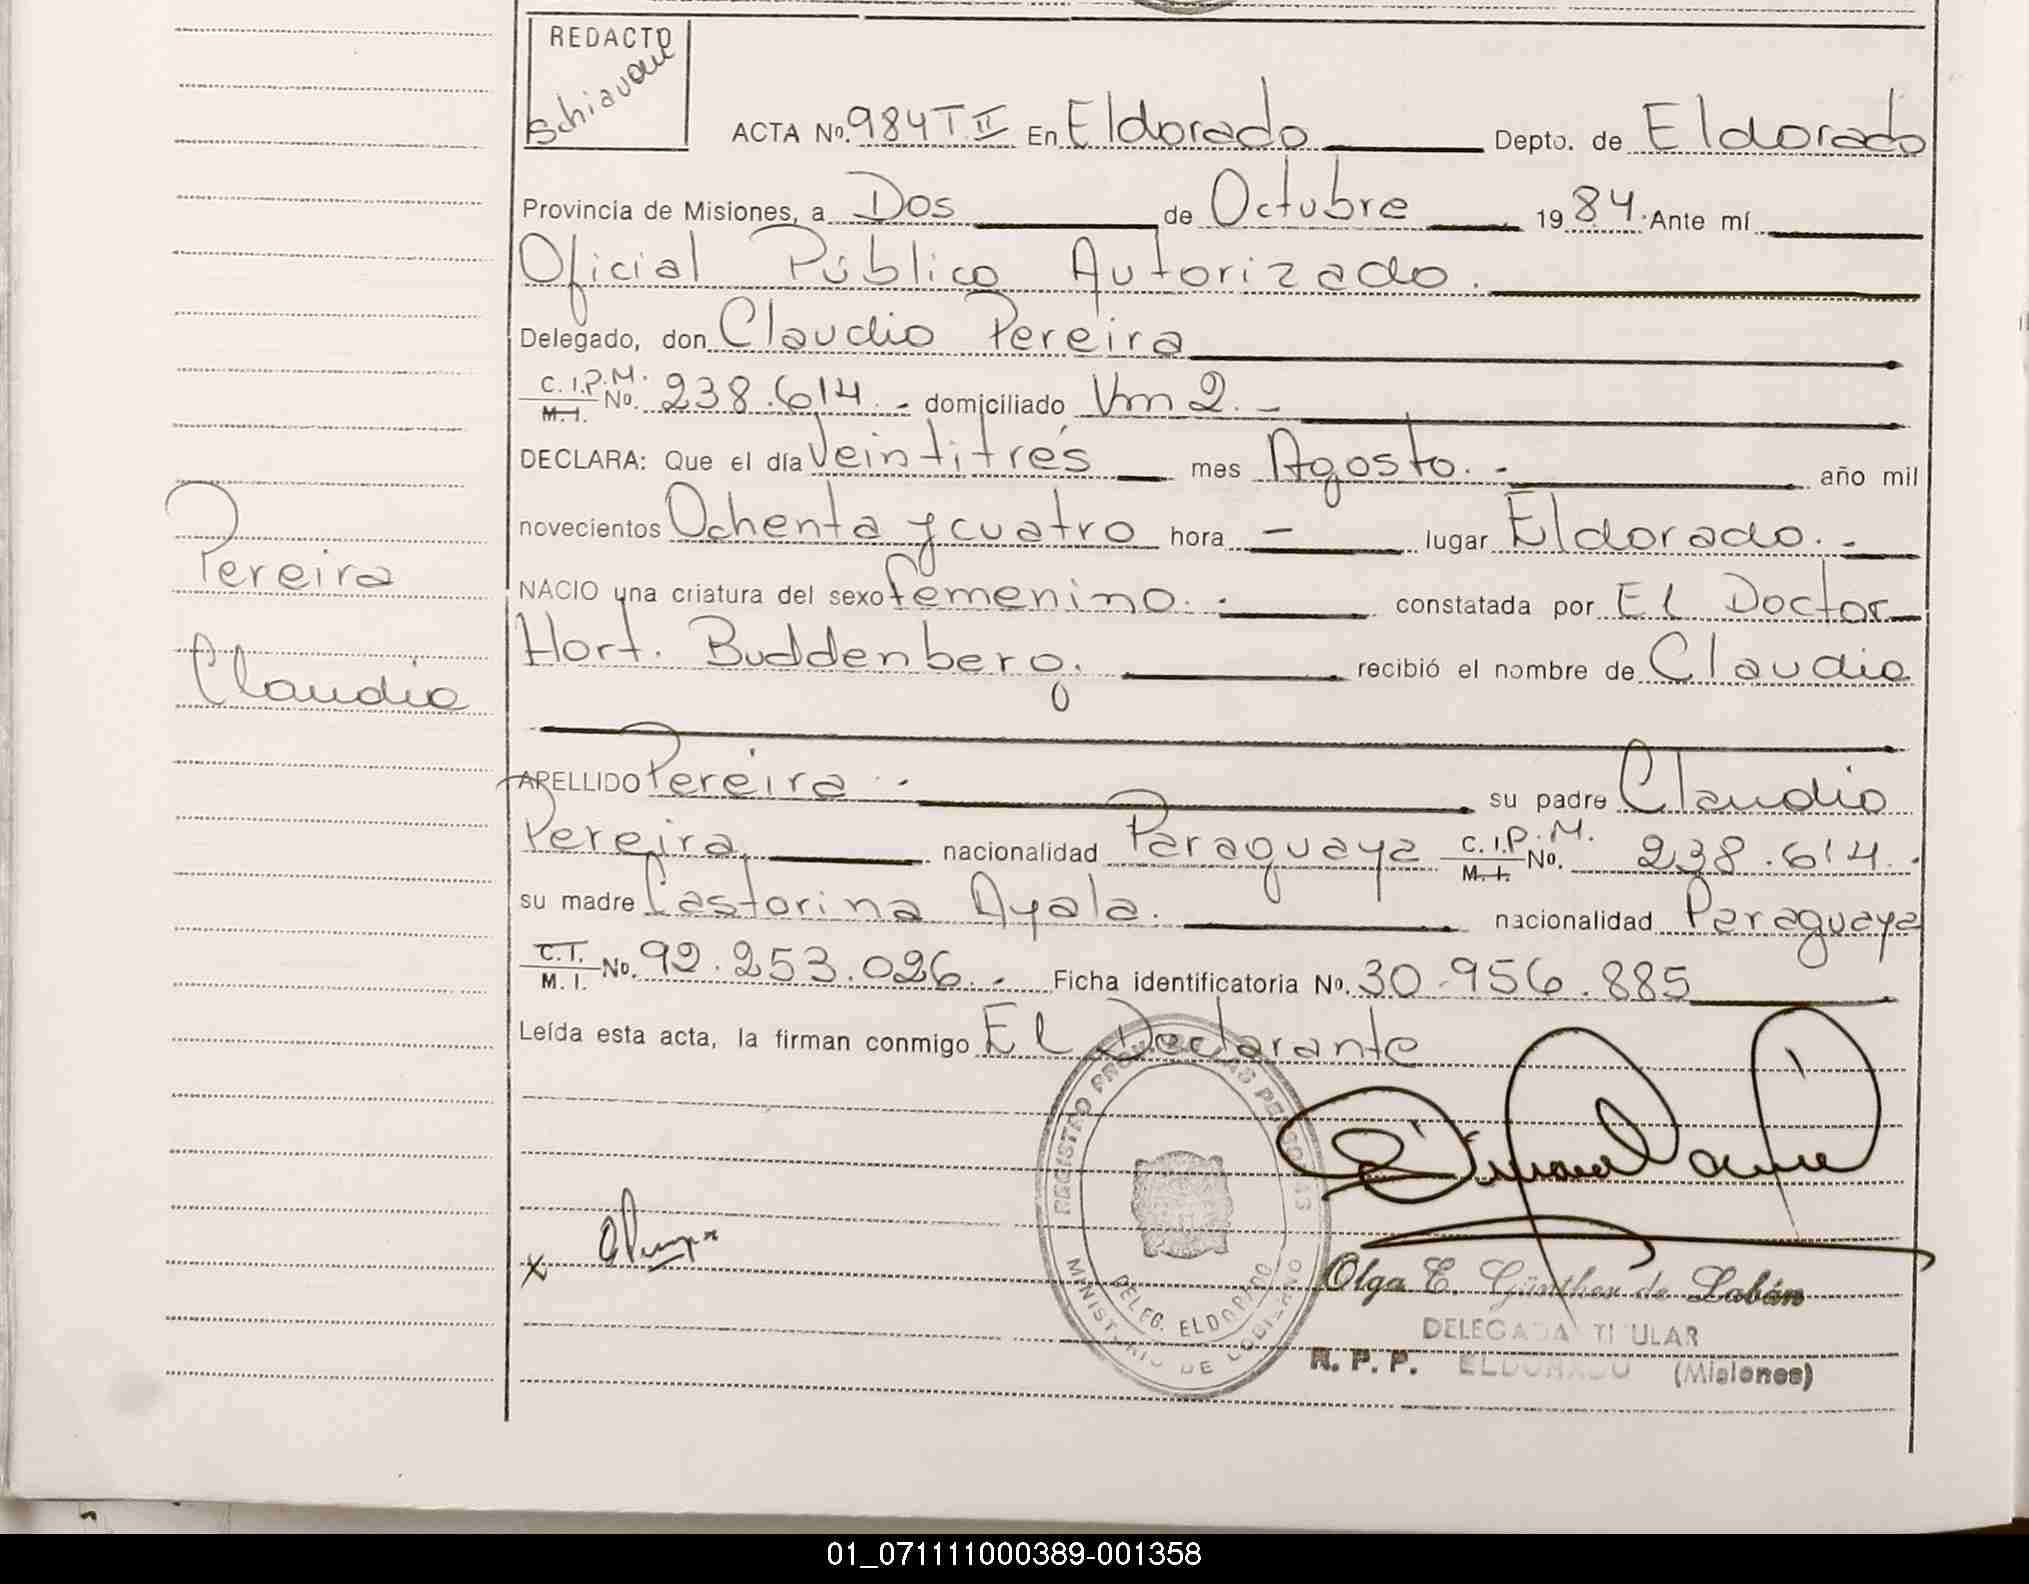 REDACTO
Schiavoni
ACTA No. 984 T. II En Eldorado Depto. de Eldorado
Provincia de Misiones, a Dos de Octubre 1984. Ante mí
Oficial Público Autorizado.
Delegado, don Claudio Pereira
C.I.P.M. M.I. No. 238.614.- domiciliado Km 2.-
DECLARA: Que el día Veintitrés mes Agosto.- año mil
novecientos Ochenta y cuatro hora - lugar Eldorado.-
NACIO una criatura del sexo femenino.- constatada por El Doctor
Hort. Buddenberg. recibió el nombre de Claudia
Pereira
Claudia
APELLIDO Pereira.- su padre Claudio
Pereira nacionalidad Paraguaya C.I.P.M. M.I. No. 238.614.
su madre Castorina Ayala. nacionalidad Paraguaya
C.T. M.I. No. 92.253.026.- Ficha identificatoria No. 30.956.885
Leída esta acta, la firman conmigo El Declarante
REGISTRO PROV. DE LAS PERSONAS
DELEG. ELDORADO
MINISTERIO DE GOBIERNO
x
Olga E. Günther de Labán
DELEGADA TITULAR
R. P. P. ELDORADO (Misiones)
01_071111000389-001358